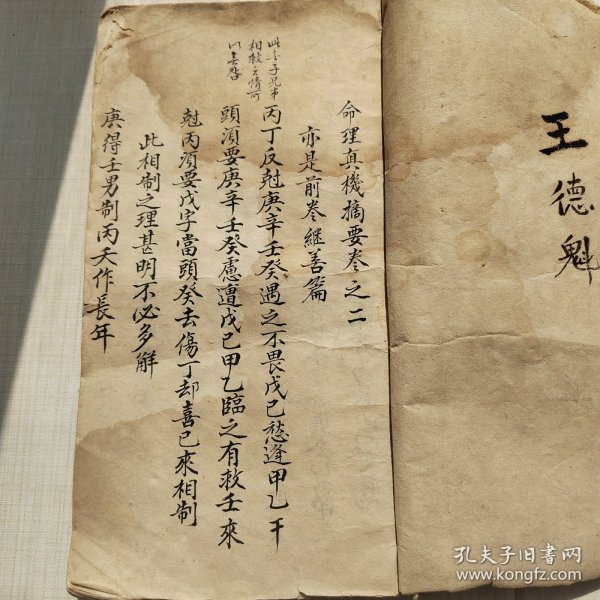 王德魁
命理真機摘要卷之二
亦是前卷継善篇
丙丁反尅庚辛壬癸遇之不畏戊己愁逢甲乙干
頭須要庚辛壬癸慮遭戊己甲乙臨之有救壬來
尅丙須要戊字當頭癸去傷丁却喜己來相制
此相制之理甚明不必多解
庚得壬男制丙夭作長年
子兄弟
相救之情可
以
孔夫子旧书网
www.kongfz.com